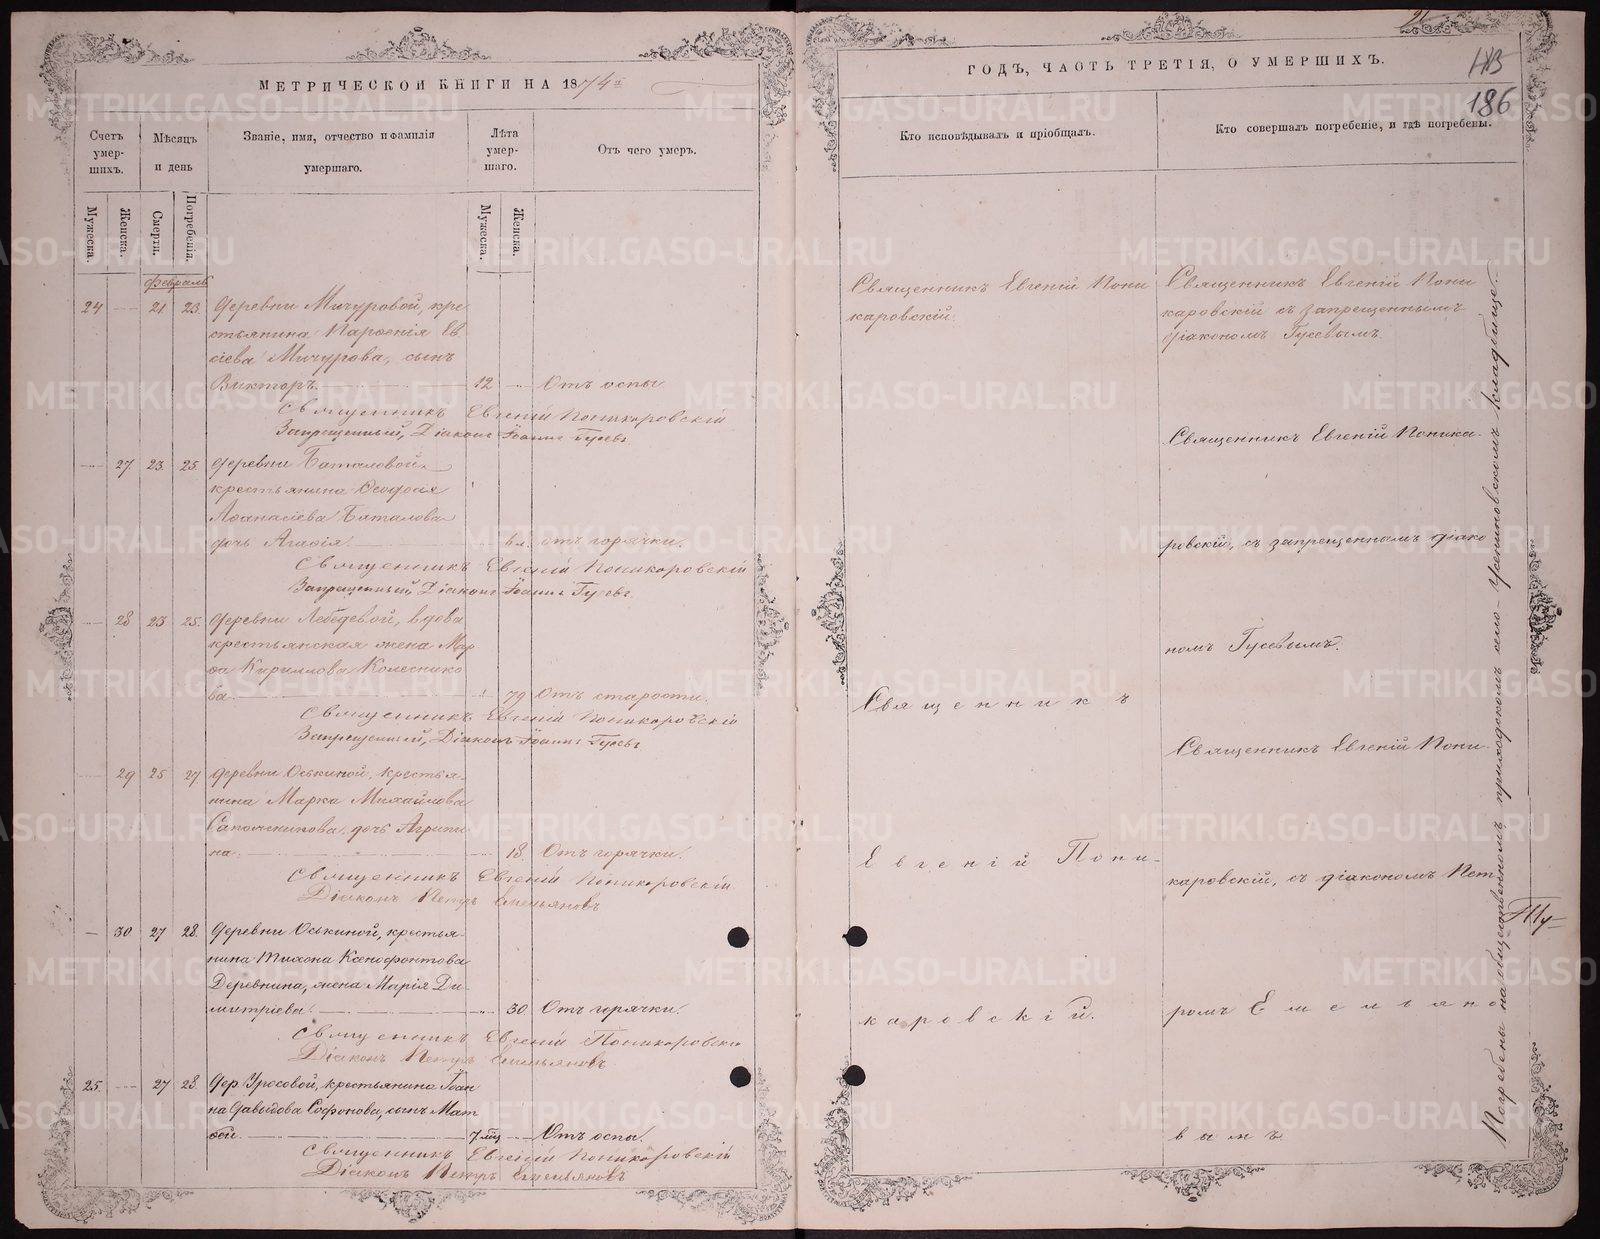 МЕТРИЧЕСКОЙ КНИГИ НА 1874й
Счетъ умер-шихъ.
Мѣсяцъ и день
Званіе, имя, отчество и фамилія умершаго.
Лѣта умер-шаго.
Отъ чего умеръ.
Мужеска.
Женска.
Смерти.
Погребенія.
Мужеска.
Женска.
февраль
24 21 23. Деревни Мичуровой, кре
стьянина Парѳенія Ев
сіева Мичурова, сынъ
Викторъ. 12 Отъ оспы.
Священникъ Евгеній Поникаровскій
Запрещенный, Діаконъ Іоаннъ Гусевъ
27 23 25. Деревни Баталовой
крестьянина
Аѳанасіева Баталова
дочь Агафія. отъ горячки.
Священникъ Евгеній Поникоровскій
Запрещенный Діаконъ Іоаннъ Гусевъ.
28 23 25. Деревни Лебедевой, вдова
крестьянская жена Мар
ѳа Кириллова Колеснико
ва. 79 Отъ старости.
Священникъ Евгеній Поникоровскій
Запрещенный, Діаконъ Іоаннъ Гусевъ
29 25 27 Деревни Оськиной, крестья-
нина Марка Михайлова
Сапожникова, дочь Агрипи
на. 18. Отъ горячки.
Священникъ Евгеній Поникоровскій
Діаконъ Петръ Емельяновъ
30. 27 28. Деревни Оськиной, крестья-
нина Тихона Ксенофонтова
Деревнина, жена Марія Ди-
митріева. 30 Отъ горячки.
Священникъ Евгеній Поникоровскій
Діаконъ Петръ Емельяновъ
25. 27 28. Дер. Уросовой, крестьянина Іоан
на Давыдова Софонова, сынъ Мат
ѳей. 7 мц Отъ оспы.
Священникъ Евгеній Поникоровскій
Діаконъ Петръ Емельяновъ
ГОДЪ, ЧАСТЬ ТРЕТІЯ, О УМЕРШИХЪ.
186
Кто исповѣдывалъ и пріобщалъ.
Кто совершалъ погребеніе, и гдѣ погребены.
Священникъ Евгеній Пони
каровскій.
Священникъ
Евгеній Пони-
каровскій.
Священникъ Евгеній Пони
каровскій съ запрещеннымъ
діакономъ Гусевымъ.
Священникъ Евгеній Поника-
ровскій, съ запрещеннымъ діако
номъ Гусевымъ.
Священникъ Евгеній Пони-
каровскій, съ діакономъ Пет
ромъ Емельяно
вымъ
Погребены на общественномъ приходскомъ село-Усениновскомъ кладбище.
METRIKI.GASO-URAL.RU